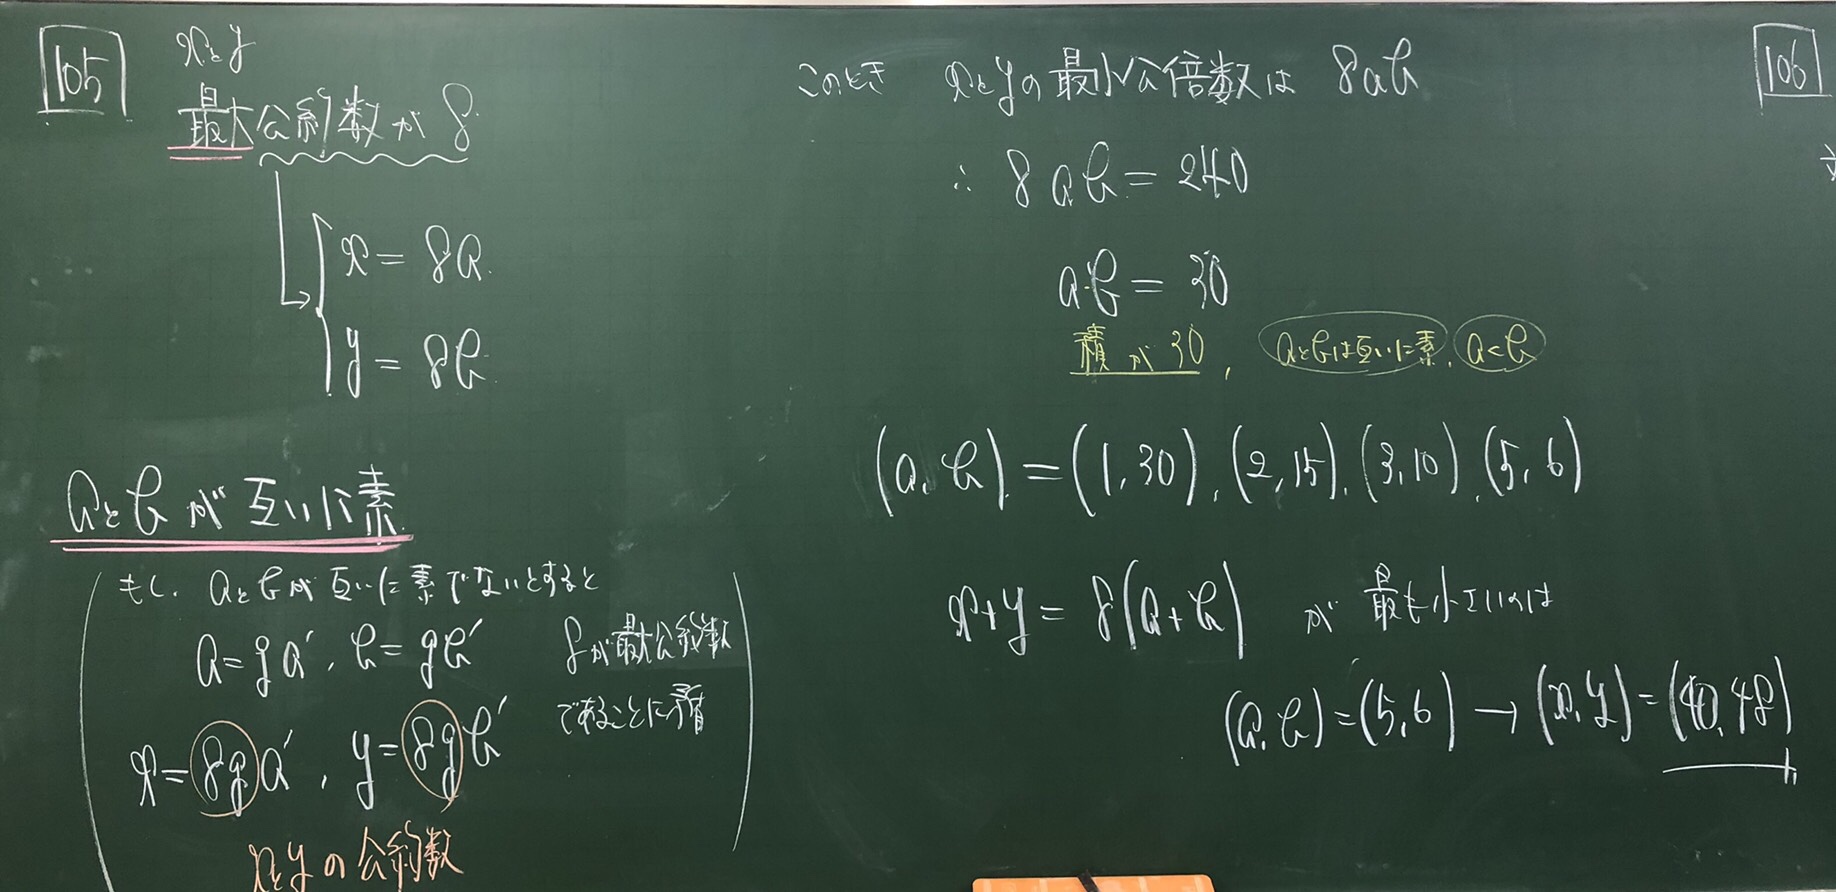 105
xとy
最大公約数が8
x = 8a
y = 8b
aとbが互いに素
もし、aとbが互いに素でないとすると
a = ga′, b = gb′
8が最大公約数
であることに矛盾
x = 8ga′, y = 8gb′
xとyの公約数
このとき xとyの最小公倍数は 8ab
∴ 8ab = 240
ab = 30
積が30, aとbは互いに素, a<b
(a, b) = (1, 30), (2, 15), (3, 10), (5, 6)
x+y = 8(a+b) が 最も小さいのは
(a, b) = (5, 6) → (x, y) = (40, 48)
106